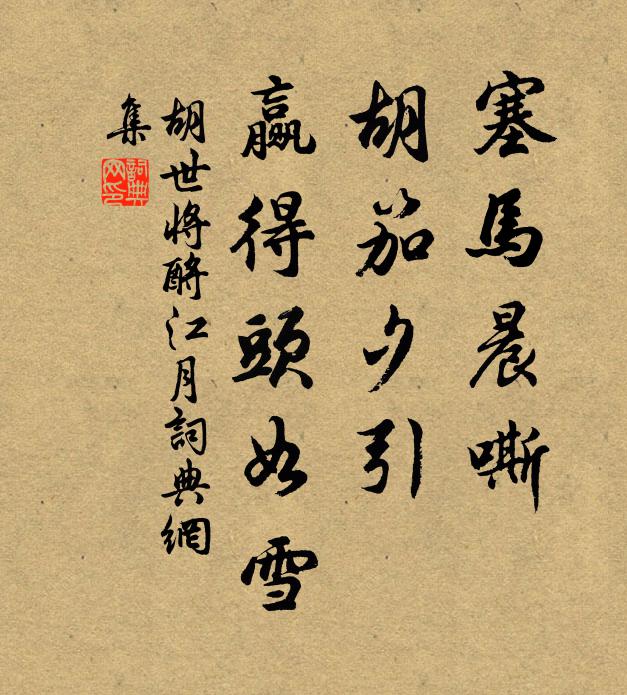 塞馬晨嘶
胡笳夕引
贏得頭如雪
胡世将酹江月詞典網
集
詞典网印